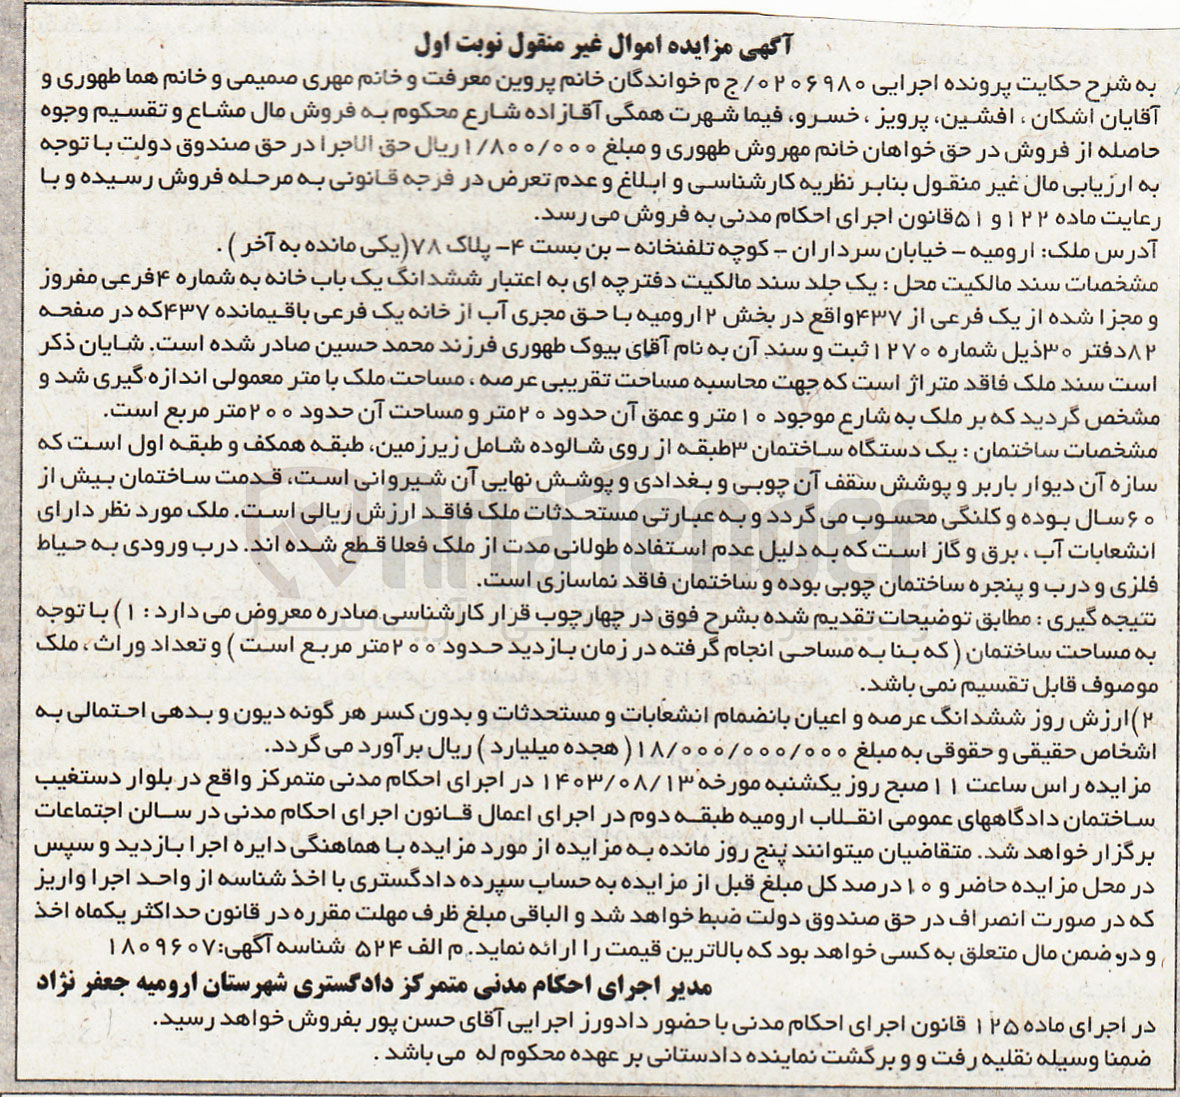 آگهی مزایده اموال غیر منقول نوبت اول
به شرح حکایت پرونده اجرایی ۰۲۰۶۹۸۰/ج م خواندگان خانم پروین معرفت و خانم مهری صمیمی و خانم هما طهوری و
آقایان اشکان ، افشین، پرویز ، خسرو، فیما شهرت همگی آقازاده شارع محکوم به فروش مال مشاع و تقسیم وجوه
حاصله از فروش در حق خواهان خانم مهروش طهوری و مبلغ ۱/۸۰۰/۰۰۰ریال حق الاجرا در حق صندوق دولت با توجه
به ارزیابی مال غیر منقول بنابر نظریه کارشناسی و ابلاغ و عدم تعرض در فرجه قانونی به مرحله فروش رسیده و با
رعایت ماده ۱۲۲و ۵۱قانون اجرای احکام مدنی به فروش می رسد.
آدرس ملک: ارومیه – خیابان سرداران – کوچه تلفنخانه – بن بست ۴– پلاک ۷۸(یکی مانده به آخر ) .
مشخصات سند مالکیت محل : یک جلد سند مالکیت دفترچه ای به اعتبار ششدانگ یک باب خانه به شماره ۴فرعی مفروز
و مجزا شده از یک فرعی از ۴۳۷واقع در بخش ۲ارومیه با حق مجری آب از خانه یک فرعی باقیمانده ۴۳۷که در صفحه
۸۲دفتر ۳۰ذیل شماره ۱۲۷۰ثبت و سند آن به نام آقای بیوک طهوری فرزند محمد حسین صادر شده است. شایان ذکر
است سند ملک فاقد متراژ است که جهت محاسبه مساحت تقریبی عرصه ، مساحت ملک با متر معمولی اندازه گیری شد و
مشخص گردید که بر ملک به شارع موجود ۱۰متر و عمق آن حدود ۲۰متر و مساحت آن حدود ۲۰۰متر مربع است.
مشخصات ساختمان : یک دستگاه ساختمان ۳طبقه از روی شالوده شامل زیرزمین، طبقه همکف و طبقه اول است که
سازه آن دیوار باربر و پوشش سقف آن چوبی و بغدادی و پوشش نهایی آن شیروانی است، قدمت ساختمان بیش از
۶۰سال بوده و کلنگی محسوب می گردد و به عبارتی مستحدثات ملک فاقد ارزش ریالی است. ملک مورد نظر دارای
انشعابات آب ، برق و گاز است که به دلیل عدم استفاده طولانی مدت از ملک فعلا قطع شده اند. درب ورودی به حیاط
فلزی و درب و پنجره ساختمان چوبی بوده و ساختمان فاقد نماسازی است.
نتیجه گیری : مطابق توضیحات تقدیم شده بشرح فوق در چهارچوب قرار کارشناسی صادره معروض می دارد : ۱) با توجه
به مساحت ساختمان ( که بنا به مساحی انجام گرفته در زمان بازدید حدود ۲۰۰متر مربع است ) و تعداد وراث ، ملک
موصوف قابل تقسیم نمی باشد.
۲)ارزش روز ششدانگ عرصه و اعیان بانضمام انشعابات و مستحدثات و بدون کسر هر گونه دیون و بدهی احتمالی به
اشخاص حقیقی و حقوقی به مبلغ ۱۸/۰۰۰/۰۰۰/۰۰۰( هجده میلیارد ) ریال برآورد می گردد.
مزایده راس ساعت ۱۱صبح روز یکشنبه مورخه ۱۴۰۳/۰۸/۱۳ در اجرای احکام مدنی متمرکز واقع در بلوار دستغیب
ساختمان دادگاههای عمومی انقلاب ارومیه طبقه دوم در اجرای اعمال قانون اجرای احکام مدنی در سالن اجتماعات
برگزار خواهد شد. متقاضیان میتوانند پنج روز مانده به مزایده از مورد مزایده با هماهنگی دایره اجرا بازدید و سپس
در محل مزایده حاضر و ۱۰درصد کل مبلغ قبل از مزایده به حساب سپرده دادگستری با اخذ شناسه از واحد اجرا واریز
که در صورت انصراف در حق صندوق دولت ضبط خواهد شد و الباقی مبلغ ظرف مهلت مقرره در قانون حداکثر یکماه اخذ
و در ضمن مال متعلق به کسی خواهد بود که بالاترین قیمت را ارائه نماید. م الف ۵۲۴ شناسه آگهی:۱۸۰۹۶۰۷
مدیر اجرای احکام مدنی متمرکز دادگستری شهرستان ارومیه جعفر نژاد
در اجرای ماده ۱۲۵ قانون اجرای احکام مدنی با حضور دادورز اجرایی آقای حسن پور بفروش خواهد رسید.
ضمنا وسیله نقلیه رفت و و برگشت نماینده دادستانی بر عهده محکوم له می باشد .
AriaTender